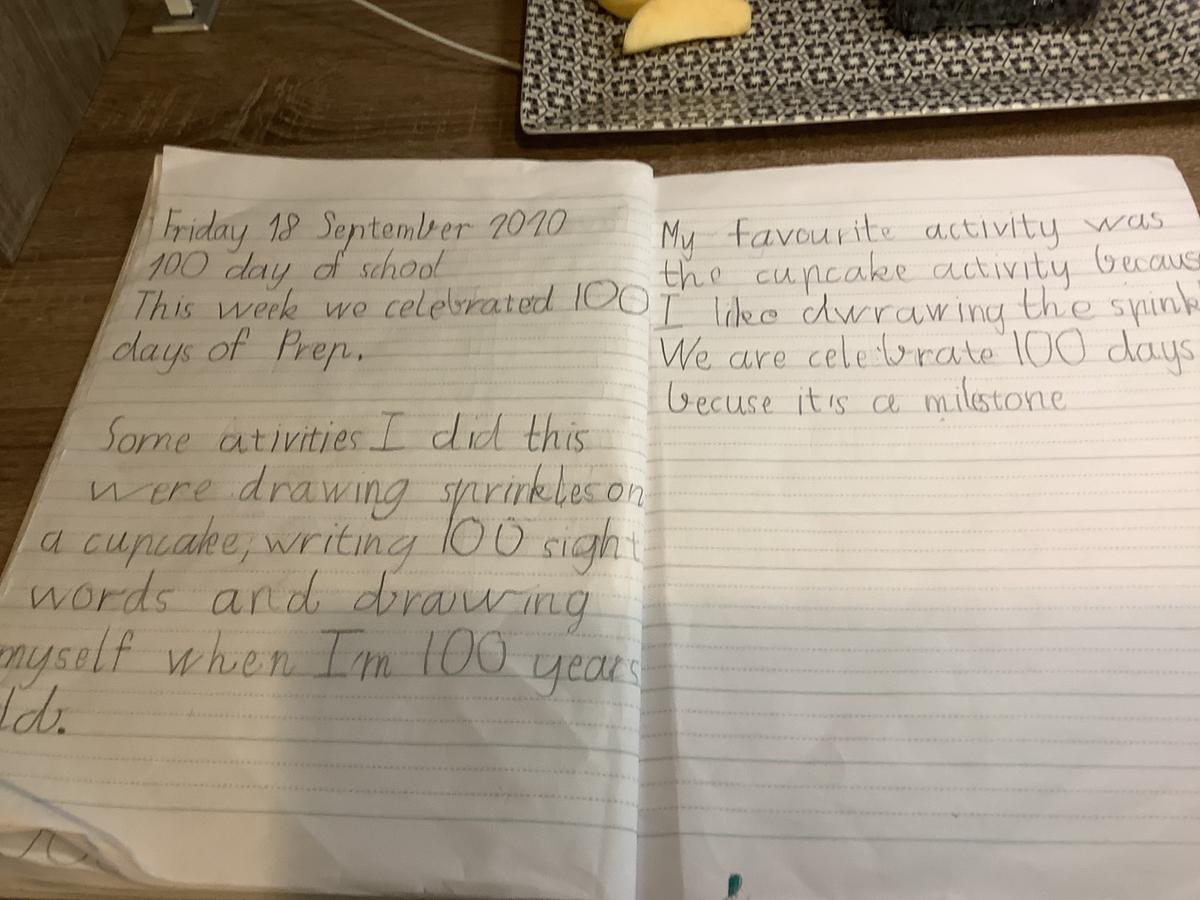 Friday 18 September 2020
100 day of school
This week we celebrated 100
days of Prep.
Some ativities I did this
were drawing sprinkles on
a cupcake, writing 100 sight
words and drawing
myself when I'm 100 years
ld.
My favourite activity was
the cupcake activity becaus
I like dwrawing the spink
We are celebrate 100 days
becuse it's a milestone